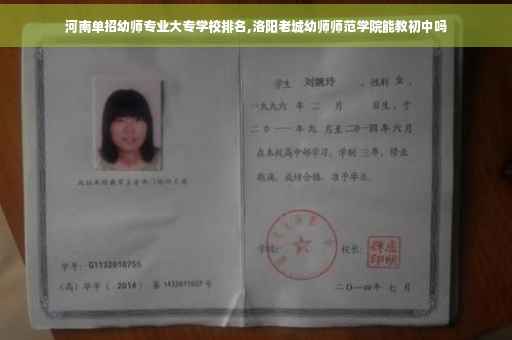 河南单招幼师专业大专学校排名,洛阳老城幼师师范学院能教初中吗
学生 刘婉玲 ，性别 女 ，
一九九六 年 二 月 日生，于
二〇一一年九 月至二〇一四年 六 月
在本校高中部学习，学制 三年，修业
期满，成绩合格，准予毕业。
学校：
校长：
学号： G1132010755
（高）毕字（ 2014 ）第 1432011027 号
二〇一四年 七 月